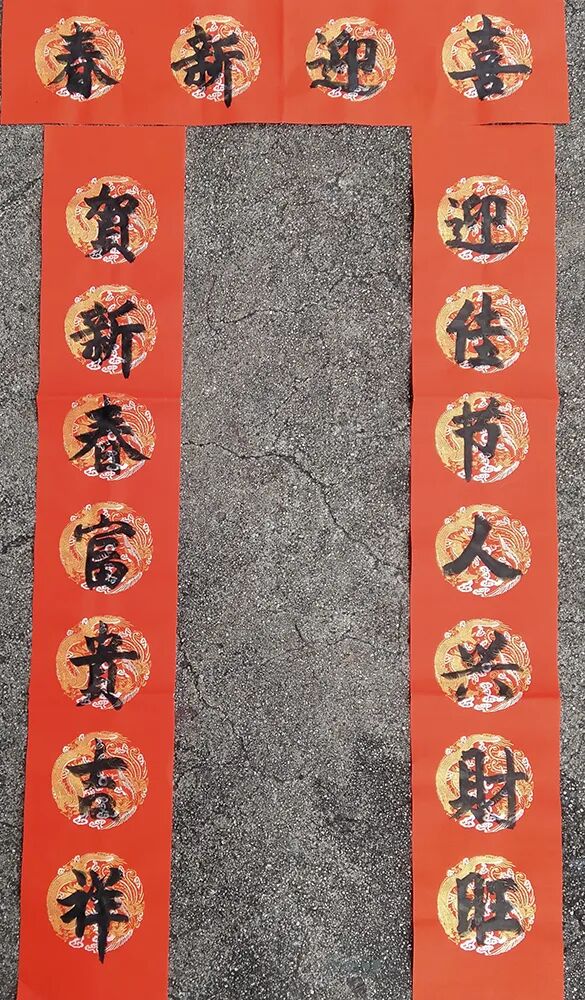 喜迎新春
迎佳节人兴財旺
賀新春富貴吉祥